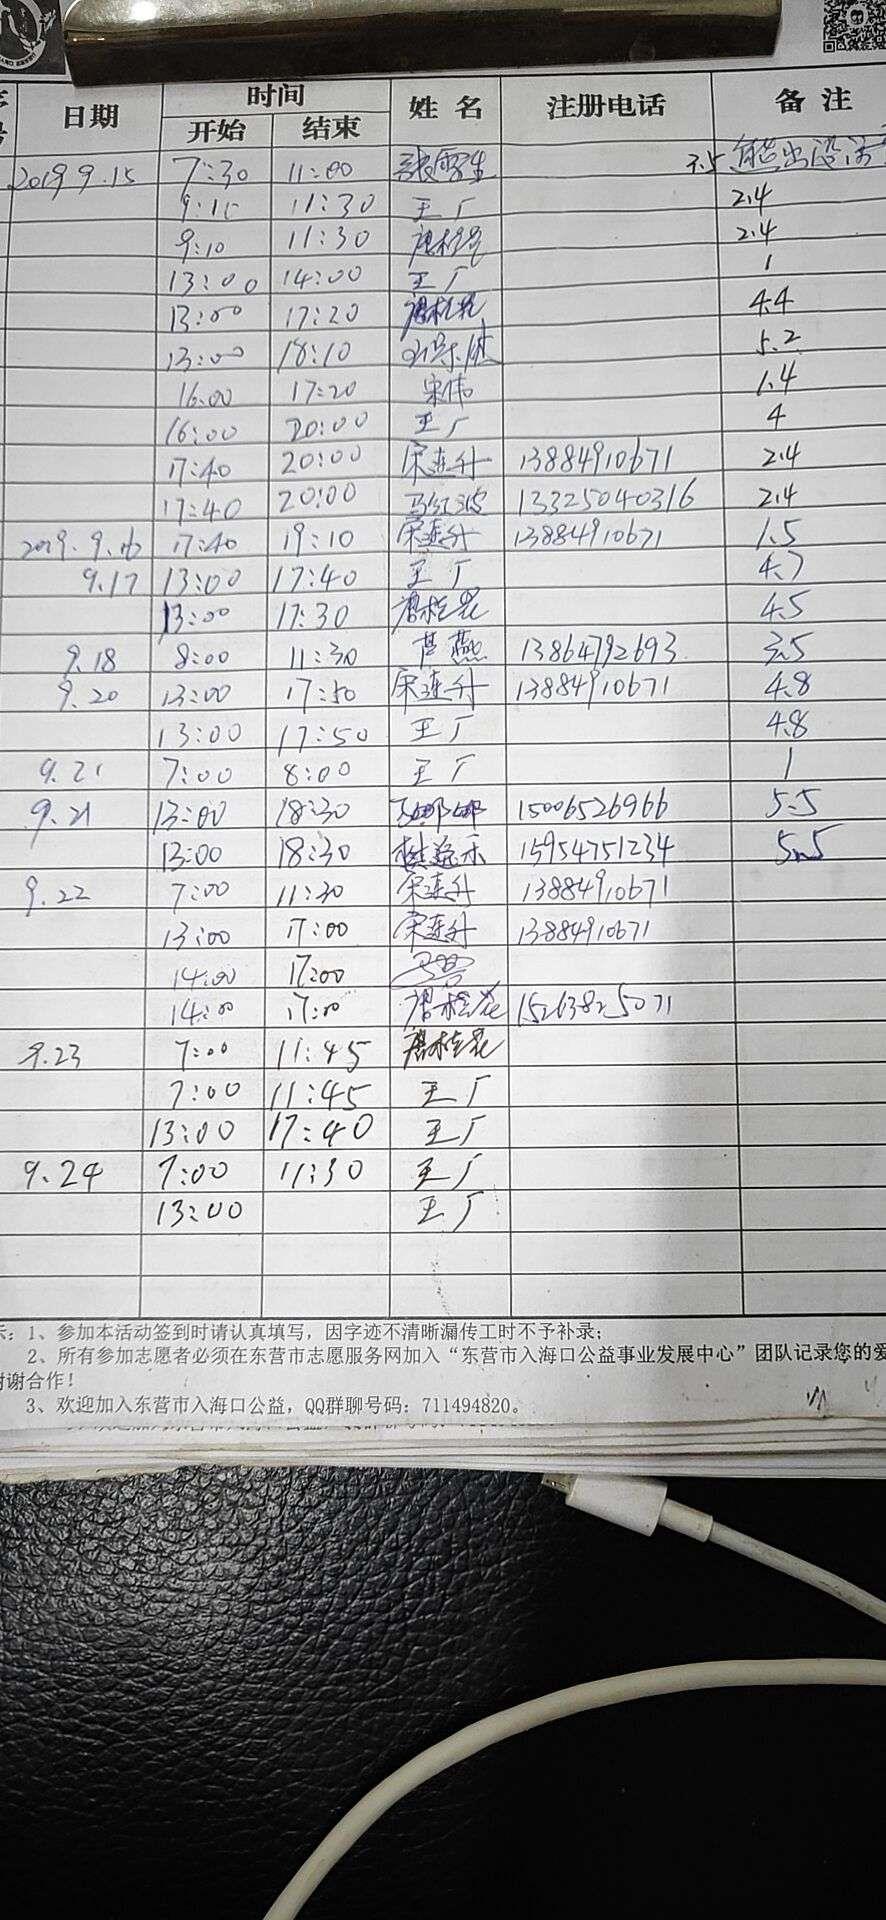 日期 时间 姓名 注册电话 备注
开始 结束
2019 9.15 7:30 11:00 3.5 熊出没
9:10 11:30 王厂 2.4
9:10 11:30 唐桂花 2.4
13:00 14:00 王厂 1
13:00 17:20 唐桂花 4.4
13:00 18:10 5.2
16:00 17:20 宋伟 1.4
16:00 20:00 王厂 4
17:40 20:00 宋连升 13884910671 2.4
17:40 20:00 马红波 13325040316 2.4
2019.9.16 17:40 19:10 宋连升 13884910671 1.5
9.17 13:00 17:40 王厂 4.7
13:00 17:30 唐桂花 4.5
9.18 8:00 11:30 燕 13864792693 3.5
9.20 13:00 17:50 宋连升 13884910671 4.8
13:00 17:50 王厂 4.8
9.21 7:00 8:00 王厂 1
9.21 13:00 18:30 15006526966 5.5
13:00 18:30 15954751234 5.5
9.22 7:00 11:30 宋连升 13884910671
13:00 17:00 宋连升 13884910671
14:00 17:00
14:00 17:00 唐桂花 15263825071
9.23 7:00 11:45 唐桂花
7:00 11:45 王厂
13:00 17:40 王厂
9.24 7:00 11:30 王厂
13:00 王厂
示：1、参加本活动签到时请认真填写，因字迹不清晰漏传工时不予补录；
2、所有参加志愿者必须在东营市志愿服务网加入“东营市入海口公益事业发展中心”团队记录您的爱
谢谢合作！
3、欢迎加入东营市入海口公益，QQ群聊号码：711494820。